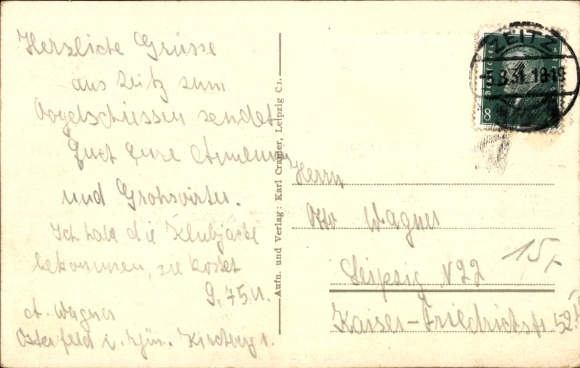 Herzliche Grüsse
aus Zeitz zum
Vogelschiessen sendet
Euch Eure Annemarie
und Grohsvirter.
Ich habe die Klubjacke
bekommen, sie kostet
9,75 M.
A. Wagner
Osterfeld i. Thür. Kirchberg 1.
Aufn. und Verlag: Karl Cramer, Leipzig C1.
ZEITZ
-5.8.31. 18-19
8
Herrn
Otto Wagner
Leipzig N22
Kaiser-Friedrichstr 52
15,-